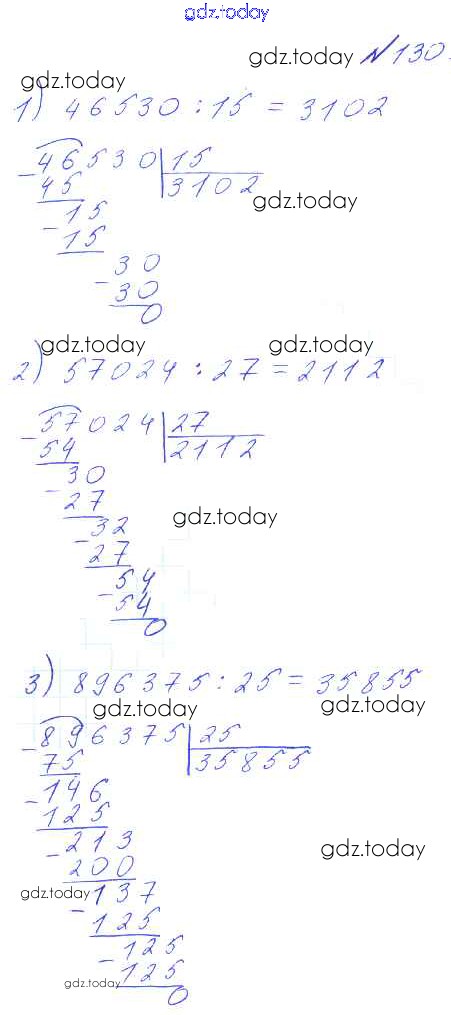 gdz.today
gdz.today №130.
gdz.today
1) 46530 : 15 = 3102
- 46530 | 15
45 3102
gdz.today
15
- 15
30
- 30
0
gdz.today gdz.today
2) 57024 : 27 = 2112
- 57024 | 27
54 2112
30
- 27
gdz.today
32
- 27
54
- 54
0
3) 896375 : 25 = 35855
gdz.today gdz.today
- 896375 | 25
75 35855
- 146
125
- 213
200
gdz.today
gdz.today
137
- 125
125
- 125
gdz.today
0